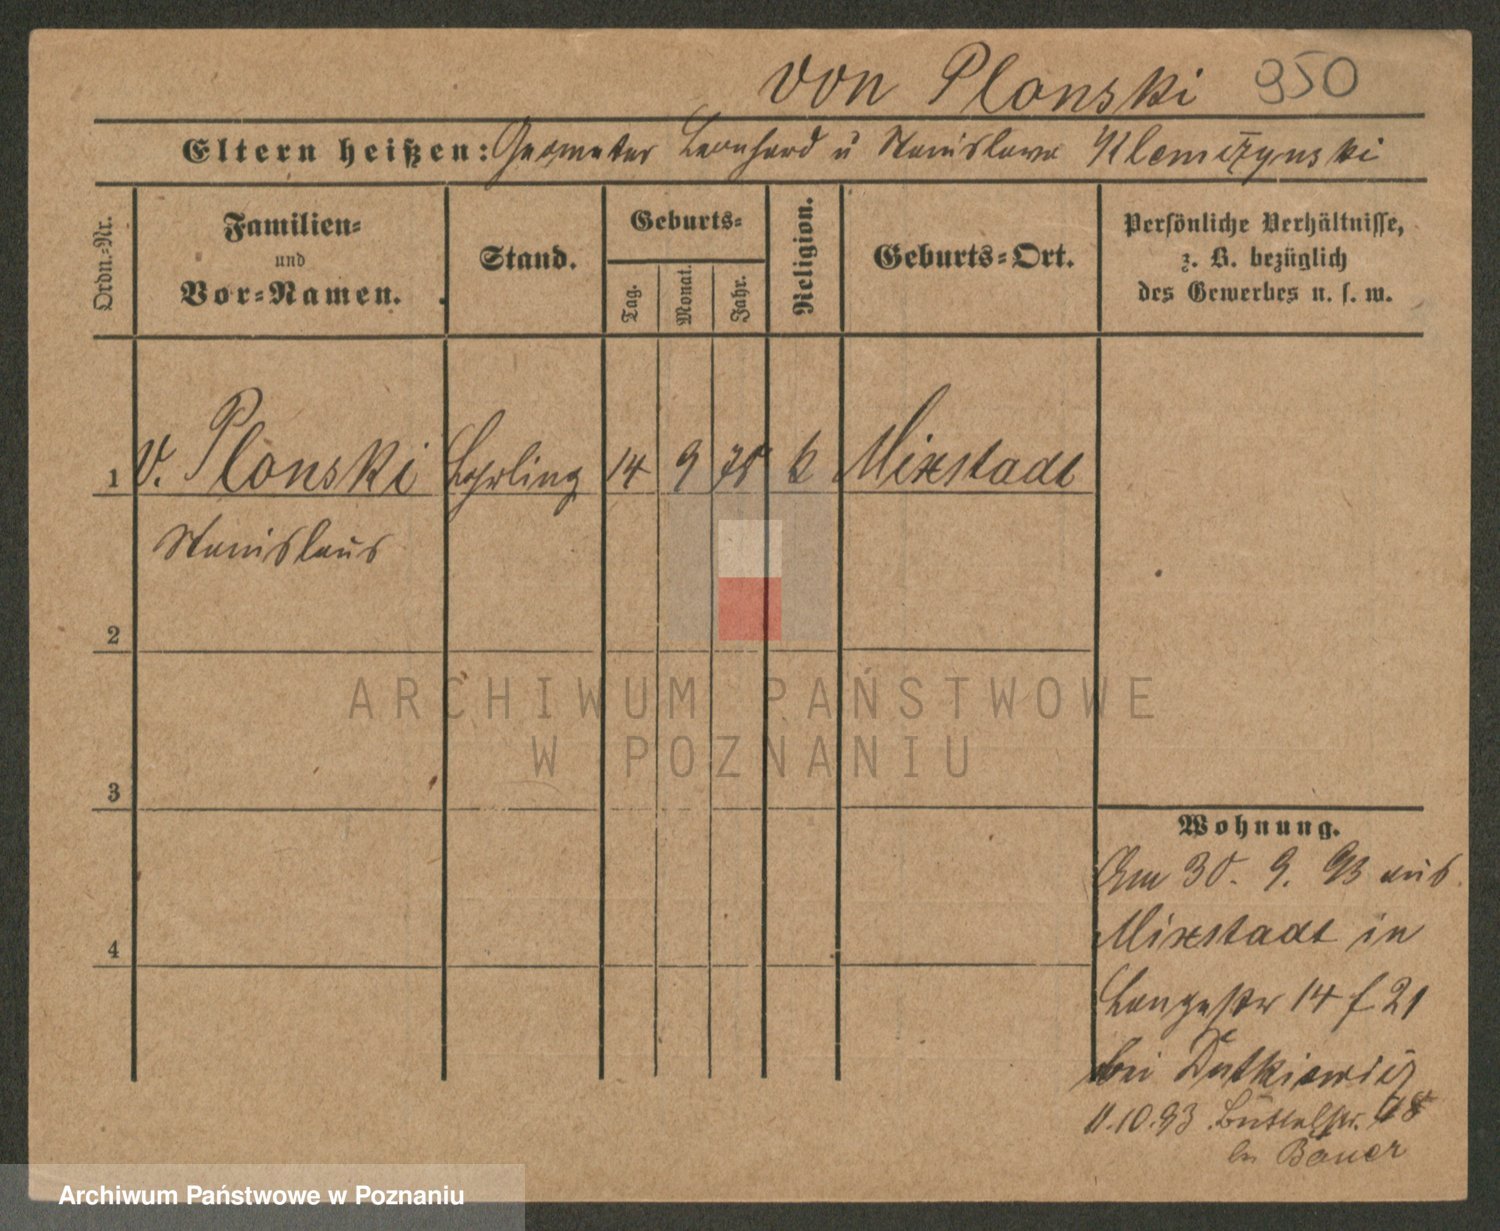 von Plonski 950
Eltern heißen: Geometer Leonhard u Stanislawa Klemczynski
Ordn.-Nr.
Familien-
und
Vor-Namen.
Stand.
Geburts-
Tag.
Monat.
Jahr.
Religion.
Geburts-Ort.
Persönliche Verhältnisse,
z. B. bezüglich
des Gewerbes u. s. w.
1 v. Plonski Lehrling 14 9 75 k Mixstadt
Stanislaus
2
3
4
Wohnung.
Am 30. 9. 93 aus
Mixstadt in
Langestr 14 f 21
bei Dutkiewicz
11.10.93. Büttelstr. 18
bei Bauer
ARCHIWUM PAŃSTWOWE
W POZNANIU
Archiwum Państwowe w Poznaniu